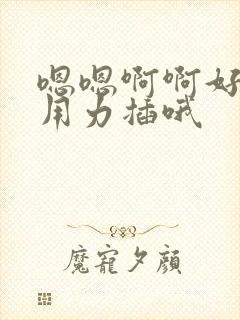 嗯嗯啊啊好
用力插哦
魔寵夕顏